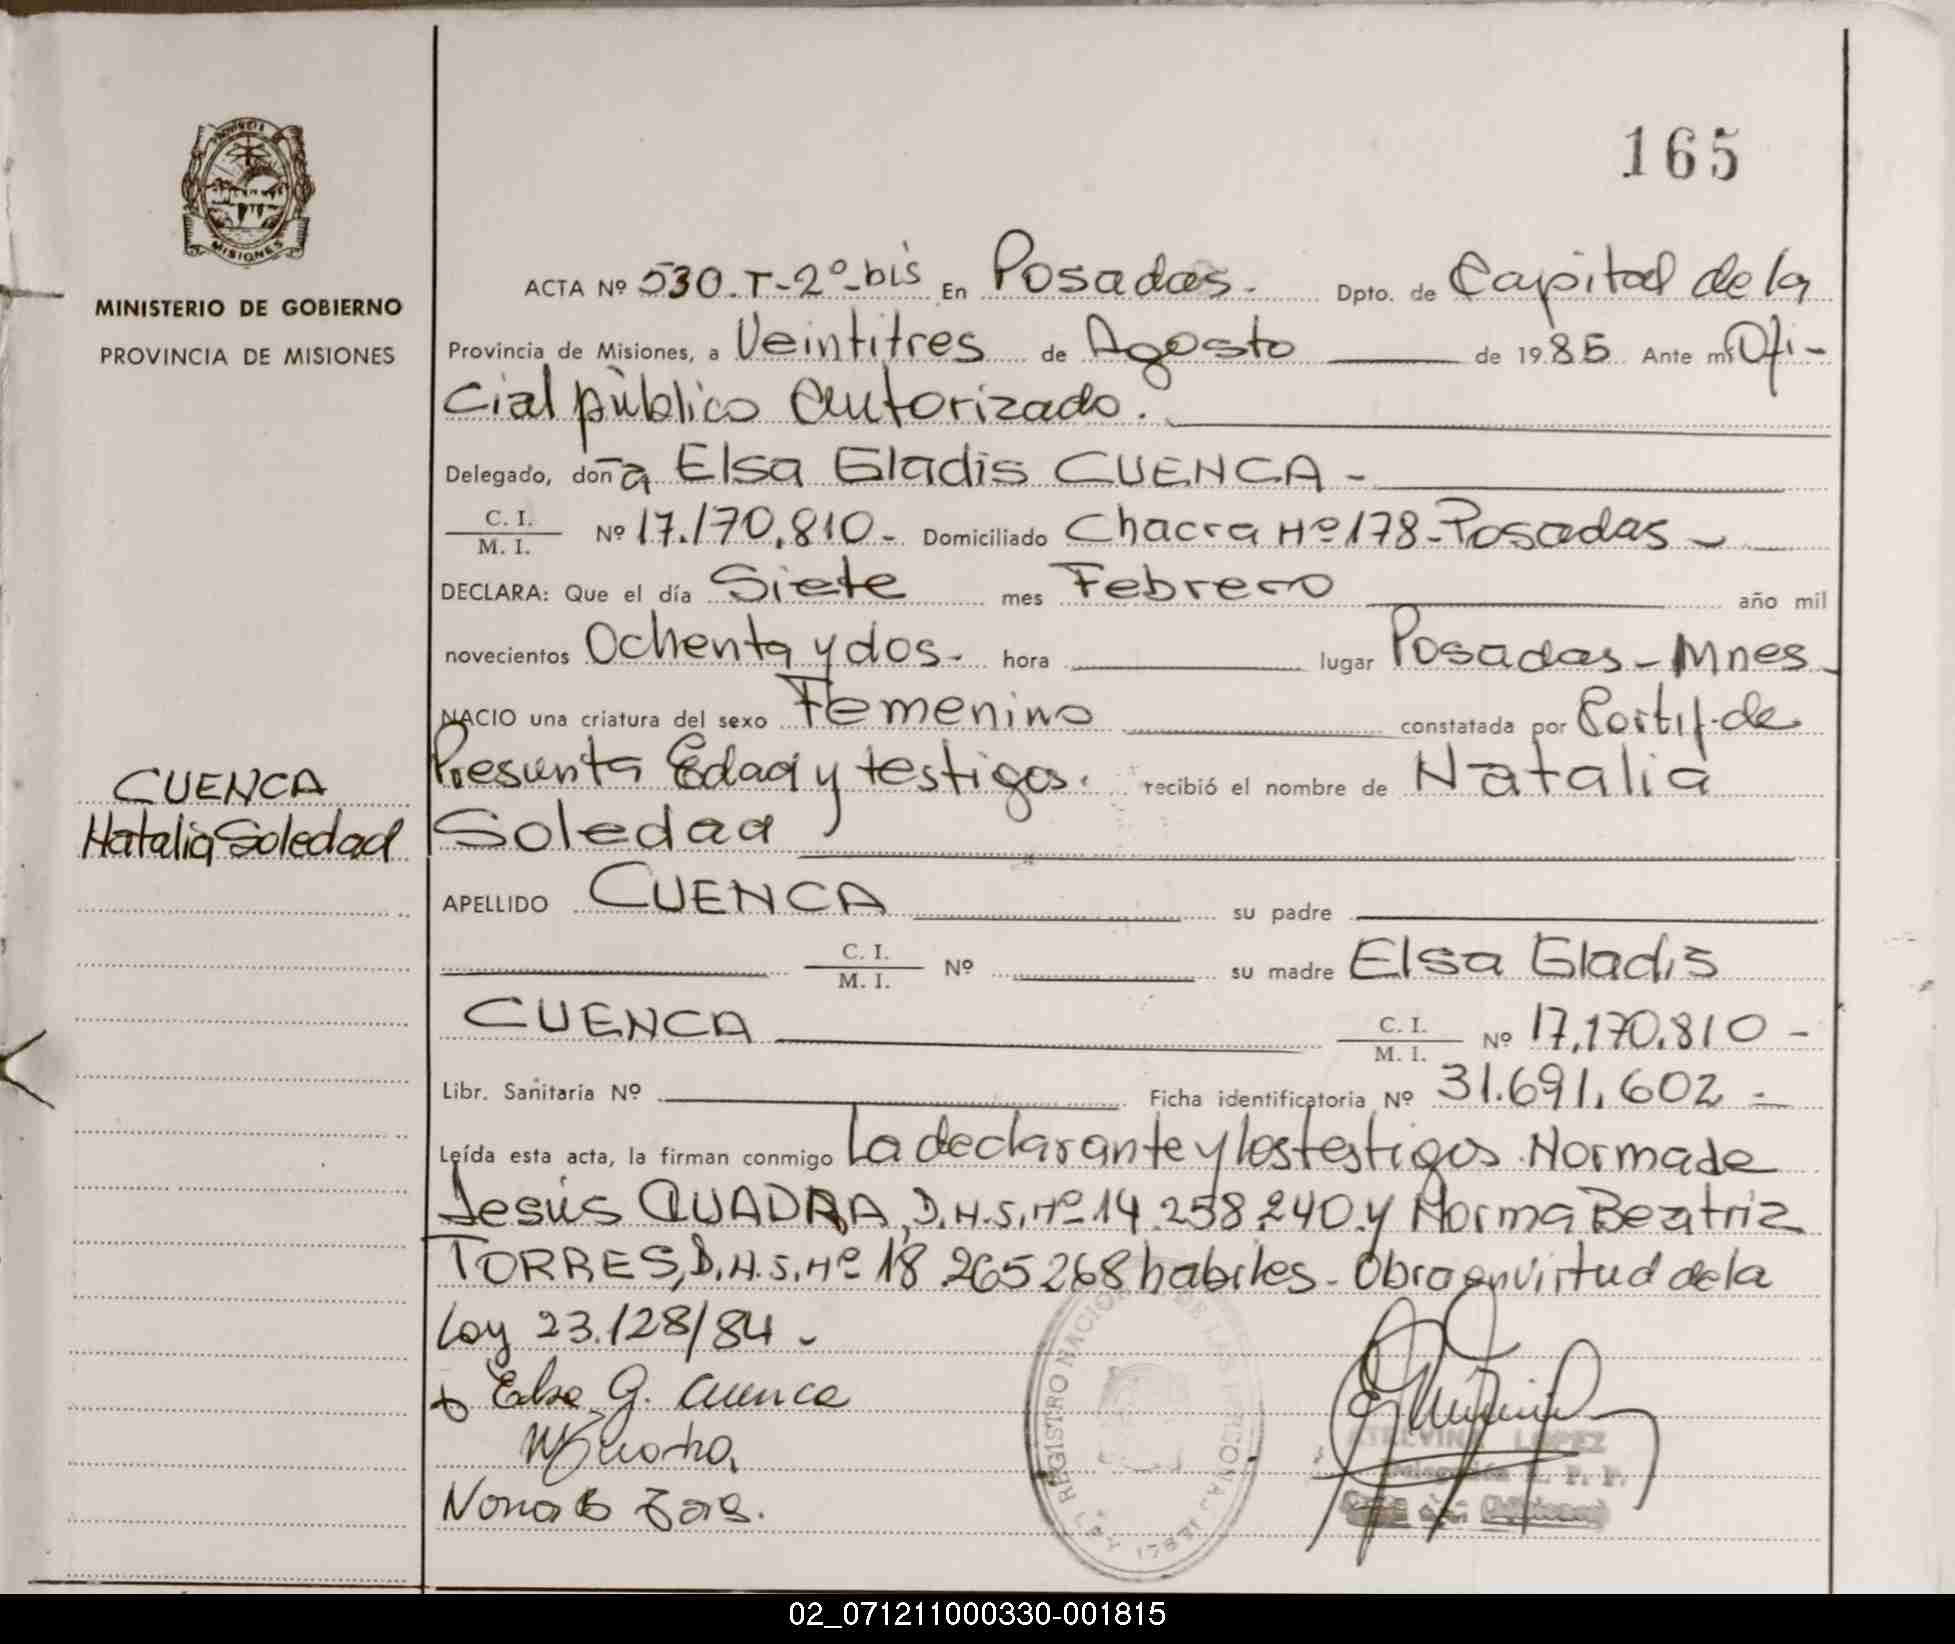 165
PROVINCIA
MISIONES
MINISTERIO DE GOBIERNO
PROVINCIA DE MISIONES
CUENCA
Natalia Soledad
ACTA Nº 530.T-2º-bis En Posadas. Dpto. de Capital de la
Provincia de Misiones, a Veintitres de Agosto de 1985 Ante mí Ofi-
cial público autorizado.
Delegado, doña Elsa Gladis CUENCA-
C. I.
M. I. Nº 17.170.810- Domiciliado Chacra Nº 178-Posadas-
DECLARA: Que el día Siete mes Febrero año mil
novecientos Ochenta y dos- hora lugar Posadas-Mnes-
NACIO una criatura del sexo Femenino constatada por Certif. de
Presunta Edad y testigos. recibió el nombre de Natalia
Soledad
APELLIDO CUENCA su padre
C. I.
M. I. Nº su madre Elsa Gladis
CUENCA C. I.
M. I. Nº 17.170.810-
Libr. Sanitaria Nº Ficha identificatoria Nº 31.691.602-
Leída esta acta, la firman conmigo La declarante y los testigos Norma de
Jesús CUADRA, D.N.I. Nº 14.258.240 y Norma Beatriz
TORRES, D.N.I. Nº 18.265268 habiles- Obra en virtud de la
Ley 23.128/84-
Elsa G. Cuenca
REGISTRO NACIONAL DE LAS PERSONAS
LEY 17821
LOPEZ
02_071211000330-001815